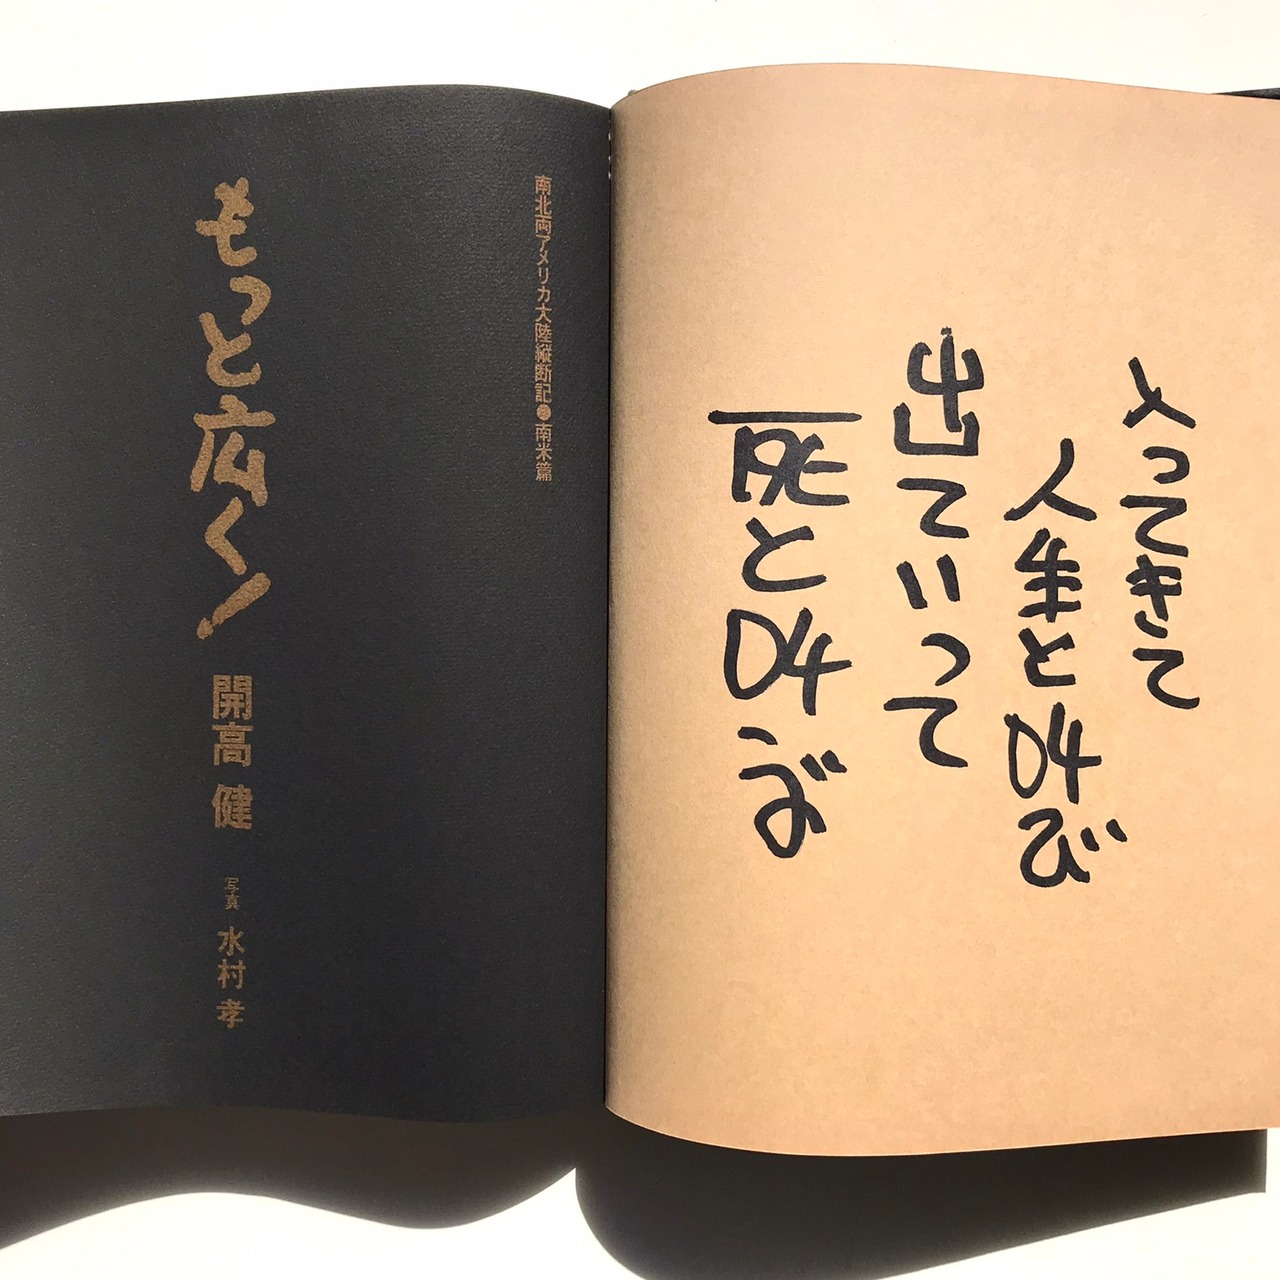 入ってきて
人生と叫び
出ていって
死と叫ぶ
南北両アメリカ大陸縦断記●南米篇
もっと広く！
開高 健
写真 水村 孝